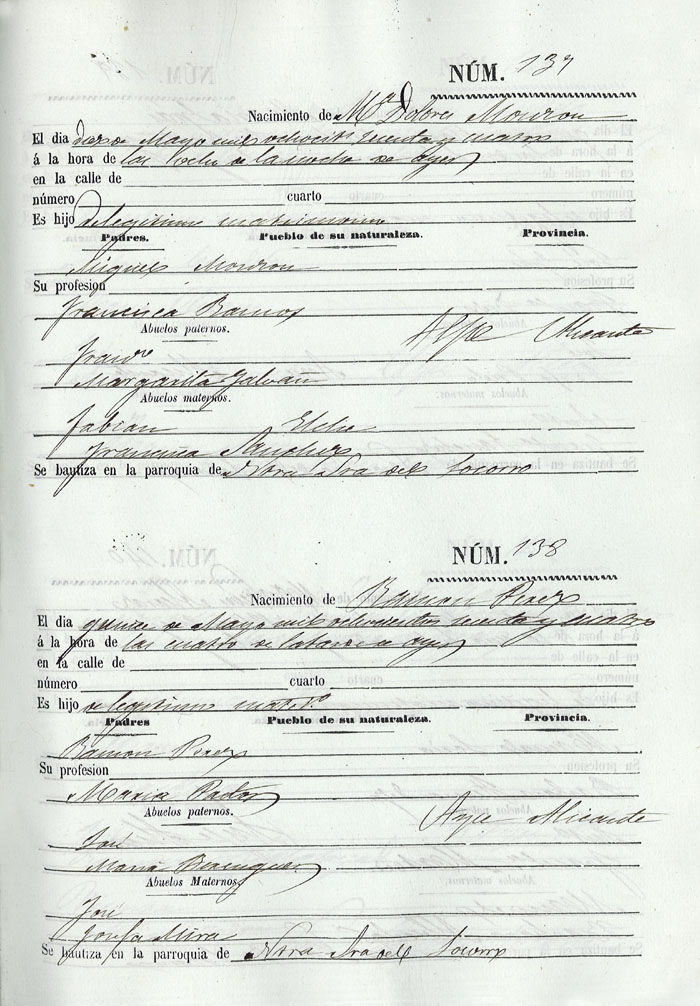 NÚM. 137
Nacimiento de Mª Dolores Mouron
El dia doze de Mayo mil ochoctos sesenta y cuatro
á la hora de las ocho de la noche de ayer
en la calle de
número cuarto
Es hijo de legitimo matrimonio
Padres. Pueblo de su naturaleza. Provincia.
Miguel Mouron
Su profesion
Francisca Ramos
Abuelos paternos.
Aspe Alicante
Franco
Margarita Galvañ
Abuelos maternos.
Fabian Elche
Francisca Sanchez
Se bautiza en la parroquia de Ntra Sra del Socorro
NÚM. 138
Nacimiento de Ramon Perez
El dia quince de Mayo mil ochocientos sesenta y cuatro
á la hora de las cuatro de la tarde de ayer
en la calle de
número cuarto
Es hijo de legitimo matrº
Padres Pueblo de su naturaleza. Provincia.
Ramon Perez
Su profesion
Maria Pastor
Abuelos paternos.
Aspe Alicante
José
Maria Berenguer
Abuelos Maternos
José
Josefa Mira
Se bautiza en la parroquia de Ntra Sra del Socorro